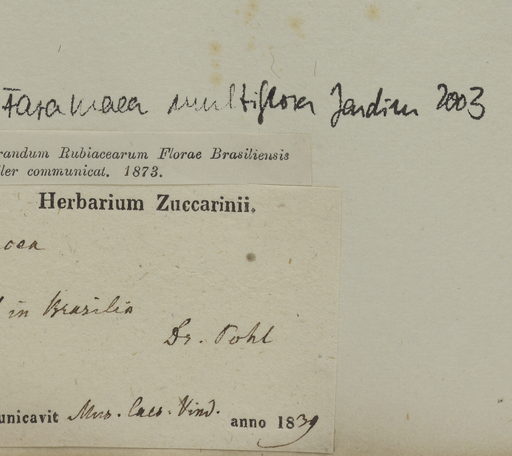 Faramaea multiflora Jardim 2003
randum Rubiacearum Florae Brasiliensis
ler communicat. 1873.
Herbarium Zuccarinii.
oea
in Brasilia
Dr. Pohl
unicavit Mus. Caes. Vind. anno 1839